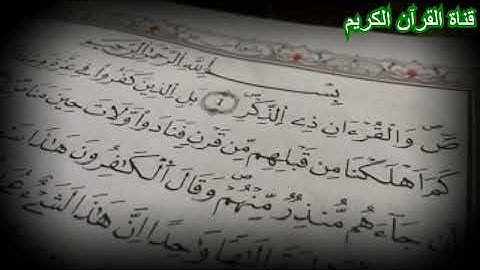 قناة القرآن الكريم
بِسْمِ اللَّهِ الرَّحْمَٰنِ الرَّحِيمِ
صٓ وَالْقُرْءَانِ ذِے اِلذِّكْرِ ١ بَلِ اِلذِينَ كَفَرُواْ فِے عِزَّةٖ
كَمَ اَهْلَكْنَا مِن قَبْلِهِم مِّن قَرْنٖ فَنَادَواْ وَّلَاتَ حِينَ مَنَاصٖ
أَن جَآءَهُم مُّنذِرٞ مِّنْهُمْ وَقَالَ اَلْكَٰفِرُونَ هَٰذَا
إِلَٰهاٗ وَٰحِداً اِنَّ هَٰذَا لَشَےْءٌ